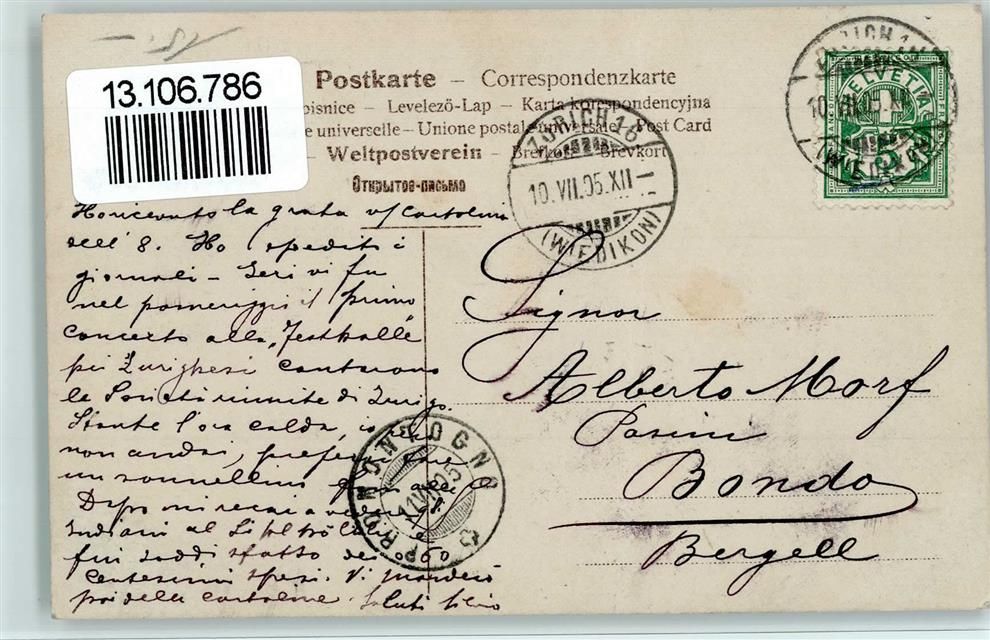 13.106.786
Postkarte – Correspondenzkarte
pisnice – Levelező-Lap – Karta korespondencyjna
e universelle – Unione postale universale Post Card
– Weltpostverein – Brefkort – Brevkort
Открытое-письмо
ZÜRICH 16
10.VII.05.XII–
(WIEDIKON)
ZÜRICH 16
10.VII.05.XII
(WIEDIKON)
HELVETIA
Ho ricevuto la grata vs cartolina
dell' 8. Ho spedito i
giornali – Ieri vi fu
nel pomeriggio il primo
concerto alla „Festhalle"
pei Zurighesi cantarono
le Società riunite di Zurigo.
Stante l'ora calda, io
non andai,
un sonnellino
Dopo mi recai a
Indiani al
fui soddisfatto dei 60
centesimi spesi. Vi manderò
poi delle cartoline. Saluti Silvio
Signor
Alberto Morf
Pasini
Bondo
Bergell
PROMONTOGNO